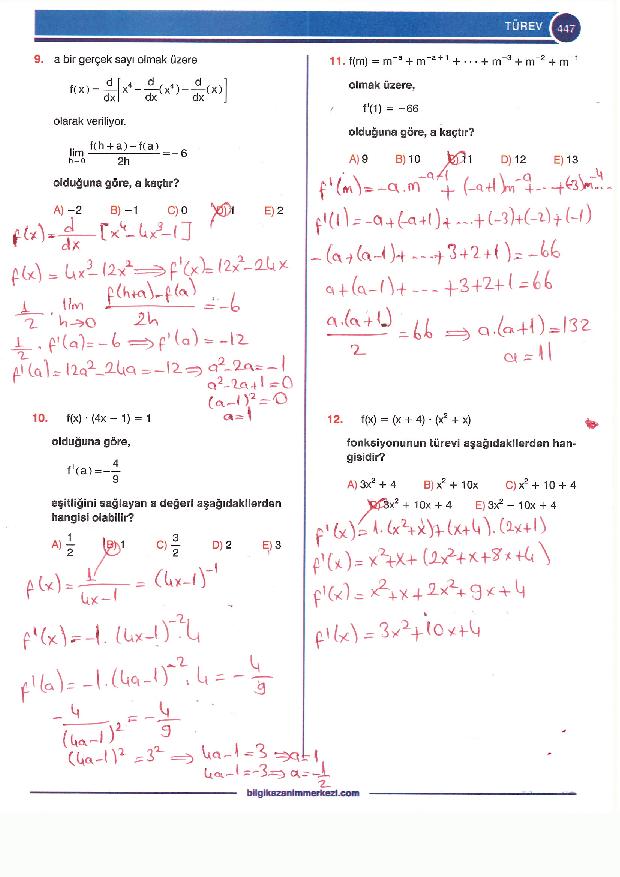 TÜREV 447
9. a bir gerçek sayı olmak üzere
f(x) = d/dx [x⁴ - d/dx (x⁴) - d/dx (x)]
olarak veriliyor.
lim h→0 f(h + a) - f(a) / 2h = -6
olduğuna göre, a kaçtır?
A) -2 B) -1 C) 0 D) 1 E) 2
f(x) = d/dx [x⁴ - 4x³ - 1]
f(x) = 4x³ - 12x² ⟹ f'(x) = 12x² - 24x
1/2 . lim h→0 f(h+a) - f(a) / 2h = -6
1/2 . f'(a) = -6 ⟹ f'(a) = -12
f'(a) = 12a² - 24a = -12 ⟹ a² - 2a = -1
a² - 2a + 1 = 0
(a-1)² = 0
a = 1
10. f(x) · (4x - 1) = 1
olduğuna göre,
f'(a) = -4/9
eşitliğini sağlayan a değeri aşağıdakilerden
hangisi olabilir?
A) 1/2 B) 1 C) 3/2 D) 2 E) 3
f(x) = 1/4x-1 = (4x-1)⁻¹
f'(x) = -1 . (4x-1)⁻² . 4
f'(a) = -1 . (4a-1)⁻² . 4 = -4/9
-4/(4a-1)² = -4/9
(4a-1)² = 3² ⟹ 4a-1 = 3 ⟹ a = 1
4a-1 = -3 ⟹ a = -1/2
11. f(m) = m⁻ᵃ + m⁻ᵃ⁺¹ + ··· + m⁻³ + m⁻² + m⁻¹
olmak üzere,
f'(1) = -66
olduğuna göre, a kaçtır?
A) 9 B) 10 C) 11 D) 12 E) 13
f'(m) = -a.m⁻ᵃ⁻¹ + (-a+1)m⁻ᵃ + ... + (-3)m⁻⁴ ...
f'(1) = -a + (-a+1) + ... + (-3) + (-2) + (-1)
-(a + (a-1) + ... + 3 + 2 + 1) = -66
a + (a-1) + ... + 3 + 2 + 1 = 66
a.(a+1)/2 = 66 ⟹ a.(a+1) = 132
a = 11
12. f(x) = (x + 4) · (x² + x)
fonksiyonunun türevi aşağıdakilerden han-
gisidir?
A) 3x² + 4 B) x² + 10x C) x² + 10 + 4
D) 3x² + 10x + 4 E) 3x² - 10x + 4
f'(x) = 1.(x²+x) + (x+4).(2x+1)
f'(x) = x² + x + (2x² + x + 8x + 4)
f'(x) = x² + x + 2x² + 9x + 4
f'(x) = 3x² + 10x + 4
bilgikazanimmerkezi.com